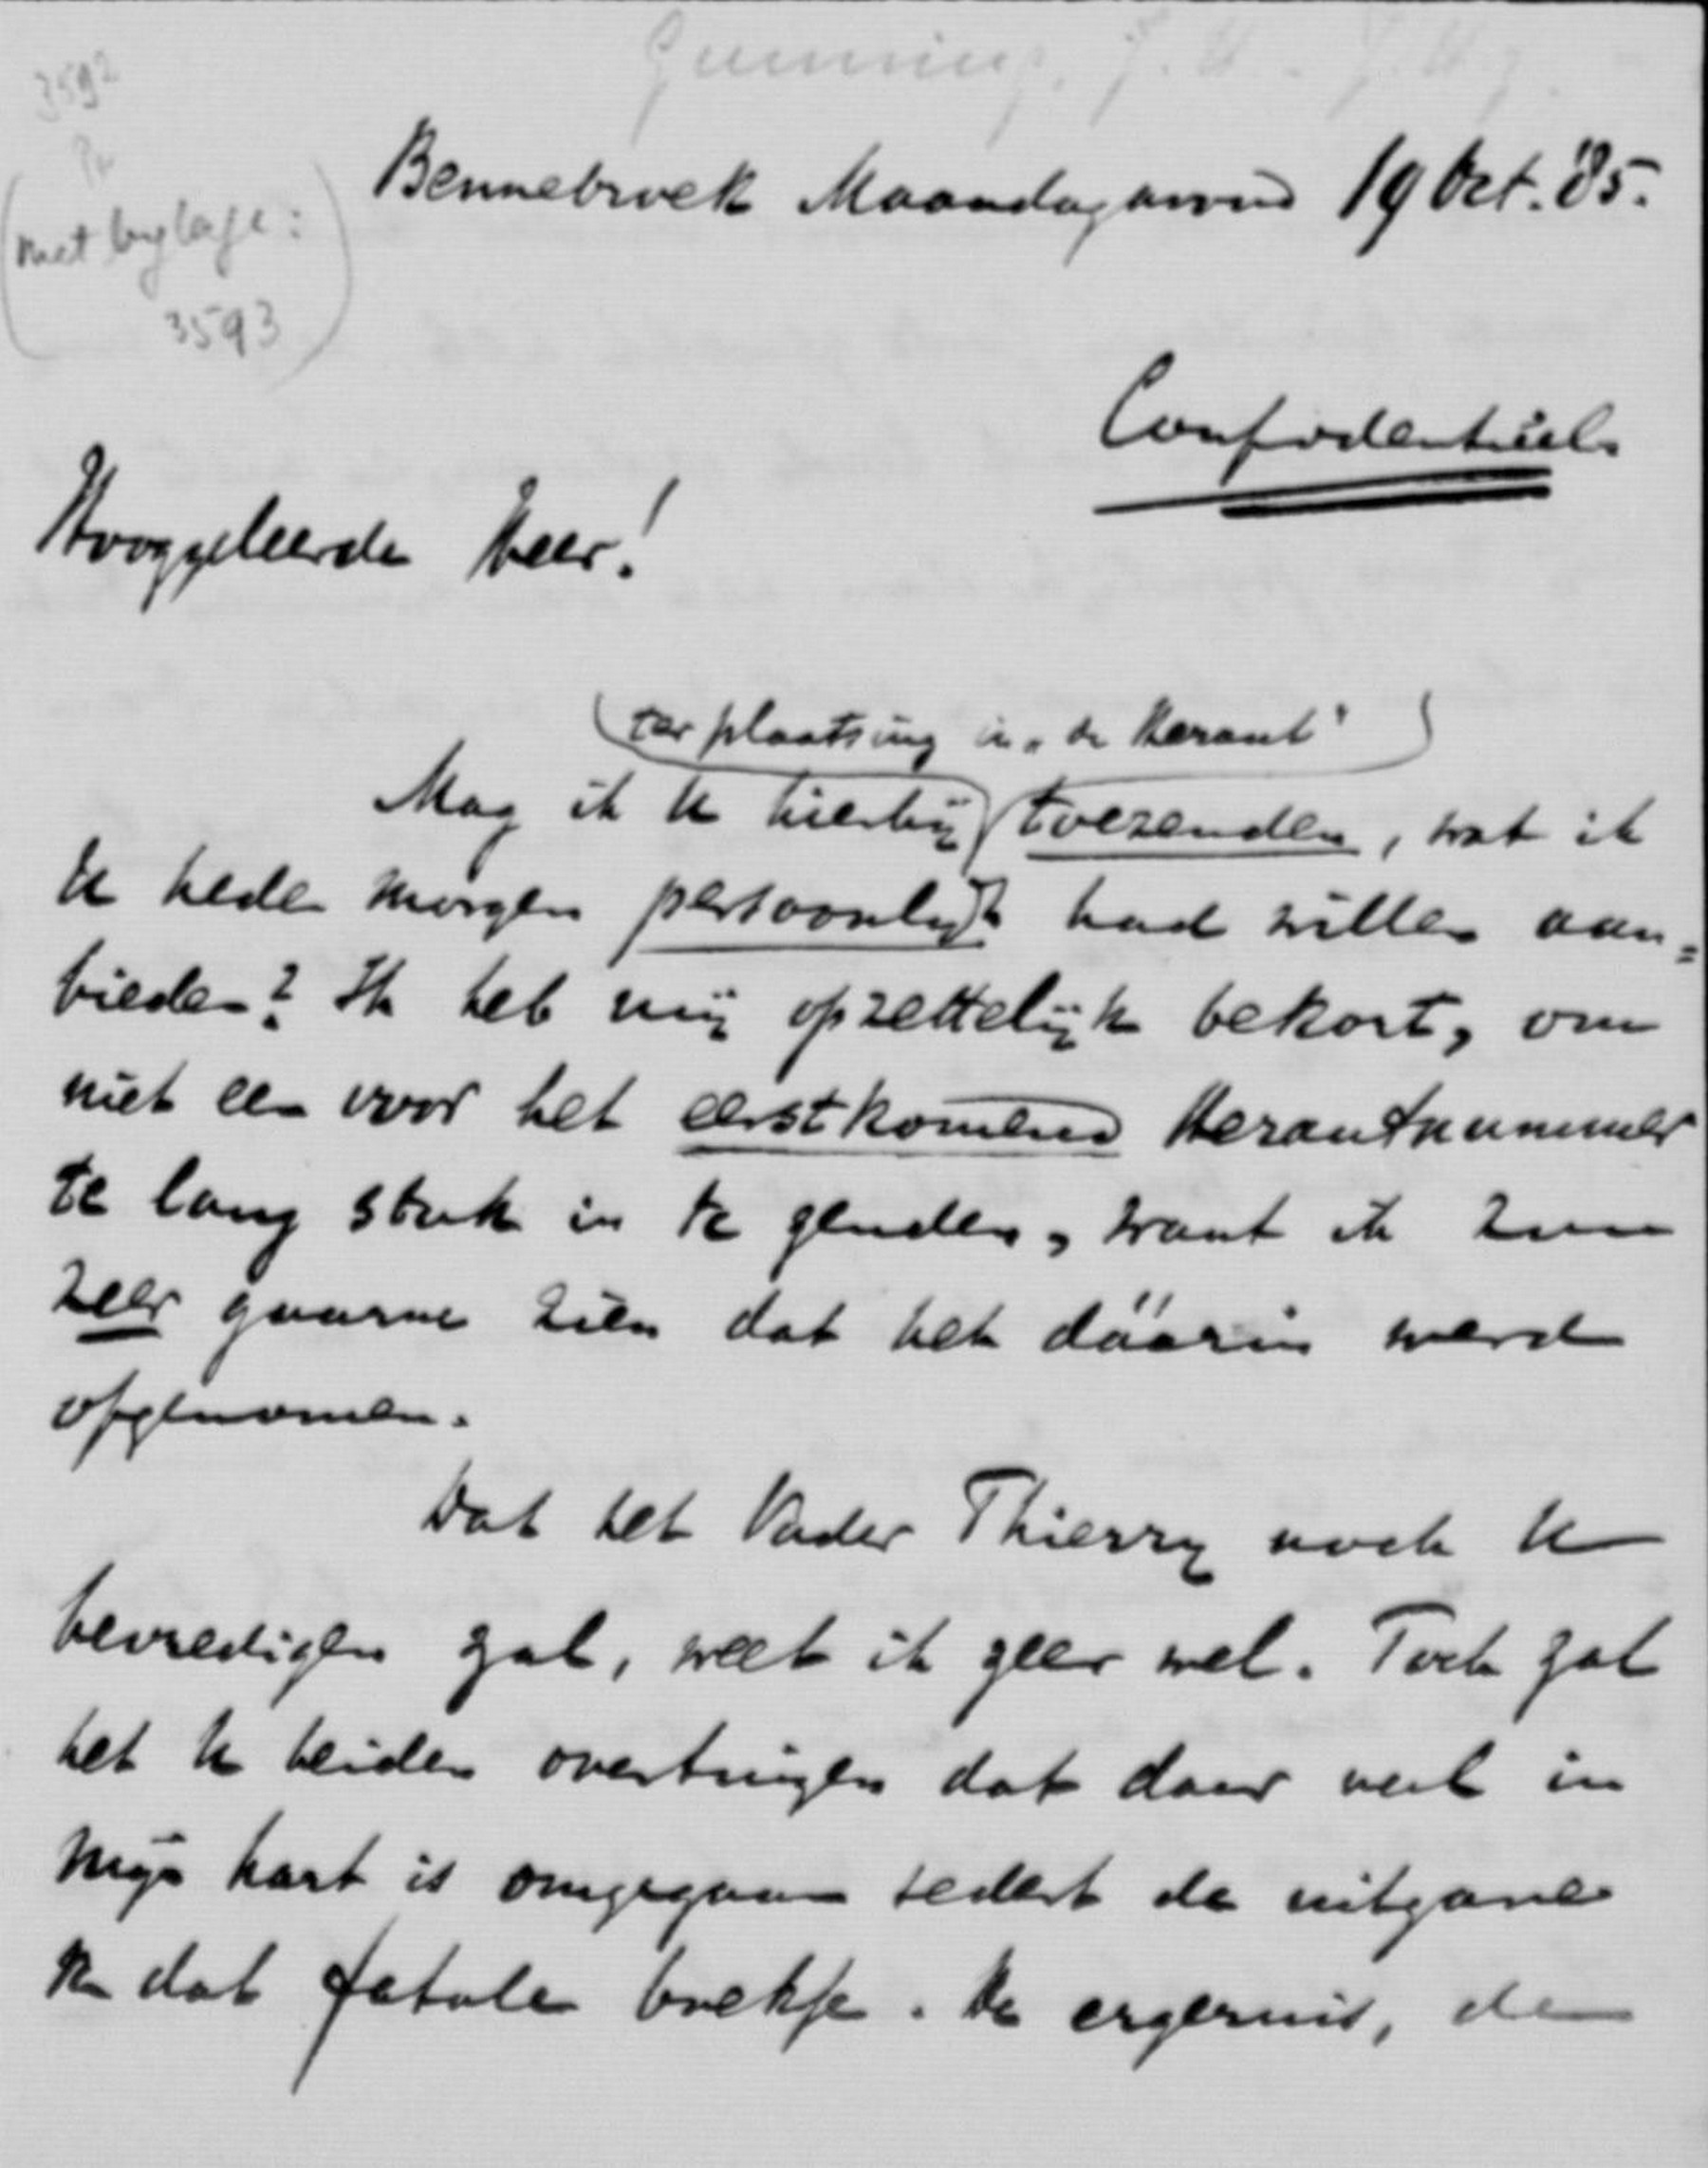 Gunning, J. H. J. Hz.
3592
(met bylage:
3593)
Bennebroek Maandagavond 19 Oct. '85.
Confidentieel.
Hooggeleerde Heer!
(ter plaatsing in „de Heraut")
Mag ik U hierbij toezenden, wat ik
U heden morgen persoonlijk had willen aan=
bieden? Ik heb mij opzettelijk bekort, om
niet een voor het eerstkomend Herautnummer
te lang stuk in te zenden, want ik zou
zeer gaarne zien dat het dáárin werd
opgenomen.
Dat het Vader Thierry noch U
bevredigen zal, weet ik zeer wel. Toch zal
het U beiden overtuigen dat daar veel in
mijn hart is omgegaan sedert de uitgave
van dat fatale boekje. De ergernis, de